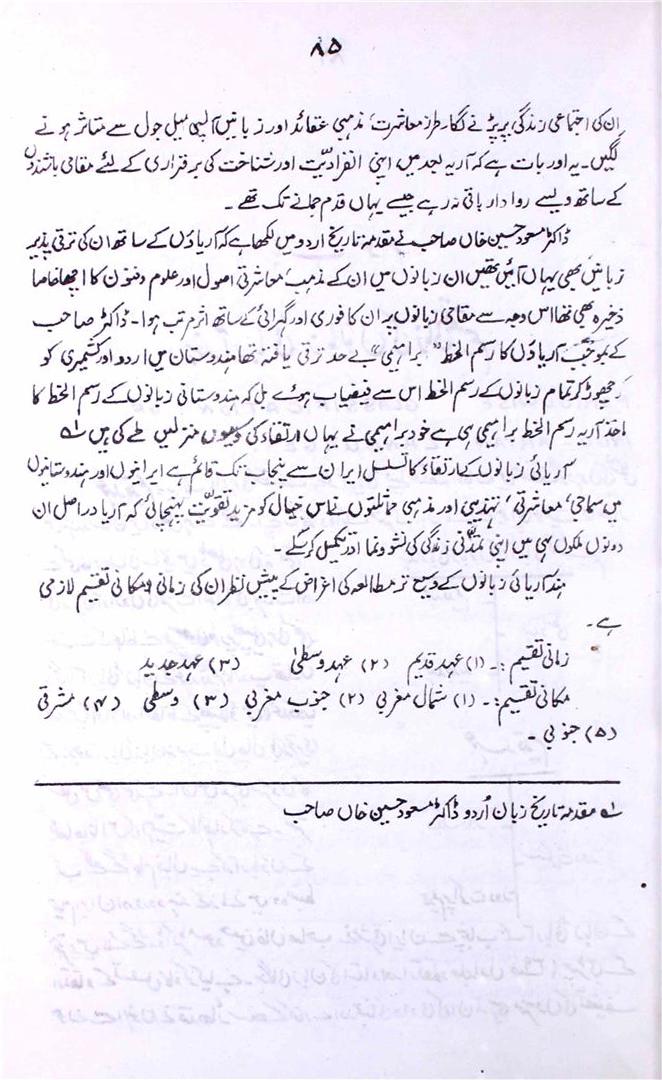 ۸۵
ان کی اجتماعی زندگی پر پڑنے لگا۔ طرز معاشرت' مذہبی عقائد اور زبانیں آپسی میل جول سے متاثر ہونے
لگیں۔ یہ اور بات ہے کہ آریہ بعد میں اپنی انفرادیّت اور شناخت کی برقراری کے لئے مقامی باشندوں
کے ساتھ ویسے روادار باقی نہ رہے جیسے یہاں قدم جمانے تک تھے ۔
ڈاکٹر مسعود حسین خاں صاحب نے مقدمہ تاریخ اردو میں لکھا ہے کہ آریاؤں کے ساتھ ان کی ترقی پذیر
زبانیں بھی یہاں آئیں تھیں ان زبانوں میں ان کے مذہب' معاشرتی اصول اور علوم و فنون کا اچھا خاصا
ذخیرہ بھی تھا اس وجہ سے مقامی زبانوں پر ان کا فوری اور گہرائی کے ساتھ اثر مرتب ہوا۔ ڈاکٹر صاحب
کے بموجب آریاؤں کا رسم الخط "براہیمی" بے حد ترقی یافتہ تھا ہندوستان میں اردو اور کشمیری کو
چھوڑ کر تمام زبانوں کے رسم الخط اس سے فیضیاب ہوئے بل کہ ہندوستانی زبانوں کے رسم الخط کا
ماخذ آریہ رسم الخط براہیمی ہی ہے خود براہیمی نے یہاں ارتقاء کی منزلیں طے کی ہیں ؎۱
آریائی زبانوں کے ارتقاء کا تسلسل ایران سے پنجاب تک قائم ہے ایرانیوں اور ہندوستانیوں
میں سماجی' معاشرتی' تہذیبی اور مذہبی مماثلتوں نے اس خیال کو مزید تقویّت پہنچائی کہ آریا دراصل ان
دونوں ملکوں ہی میں اپنی تمدّنی زندگی کی نشوونما اور تکمیل کر سکے۔
ہند آریائی زبانوں کے وسیع تر مطالعہ کی اغراض کے پیش نظر ان کی زمانی و مکانی تقسیم لازمی
ہے۔
زمانی تقسیم :۔ (۱) عہد قدیم (۲) عہد وسطیٰ (۳) عہد جدید
مکانی تقسیم :۔ (۱) شمال مغربی (۲) جنوب مغربی (۳) وسطی (۴) مشرقی
(۵) جنوبی ۔
؎۱ مقدمہ تاریخ زبان اُردو ڈاکٹر مسعود حسین خاں صاحب